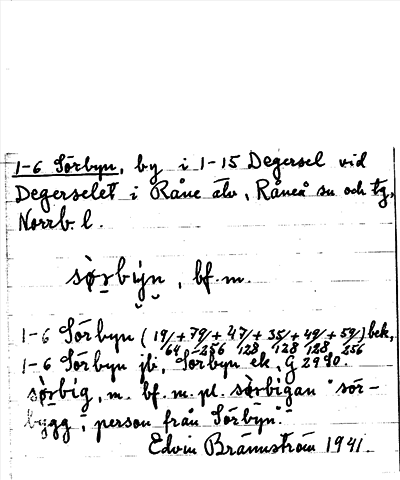 1-6 Sörbyn, by i 1-15 Degersel vid
Degerselet i Råne älv, Råneå sn och tg,
Norrb. l.
sø̀rbyn, bf. m.
1-6 Sörbyn (19/64 + 79/256 + 47/128 + 35/128 + 49/128 + 59/256) bek.,
1-6 Sörbyn jb, Sörbyn ek, G 2980.
sø̀rbig, m. bf. m. pl. sø̀rbigan "sör-
bygg", person från Sörbyn".
Edvin Brännström 1941.